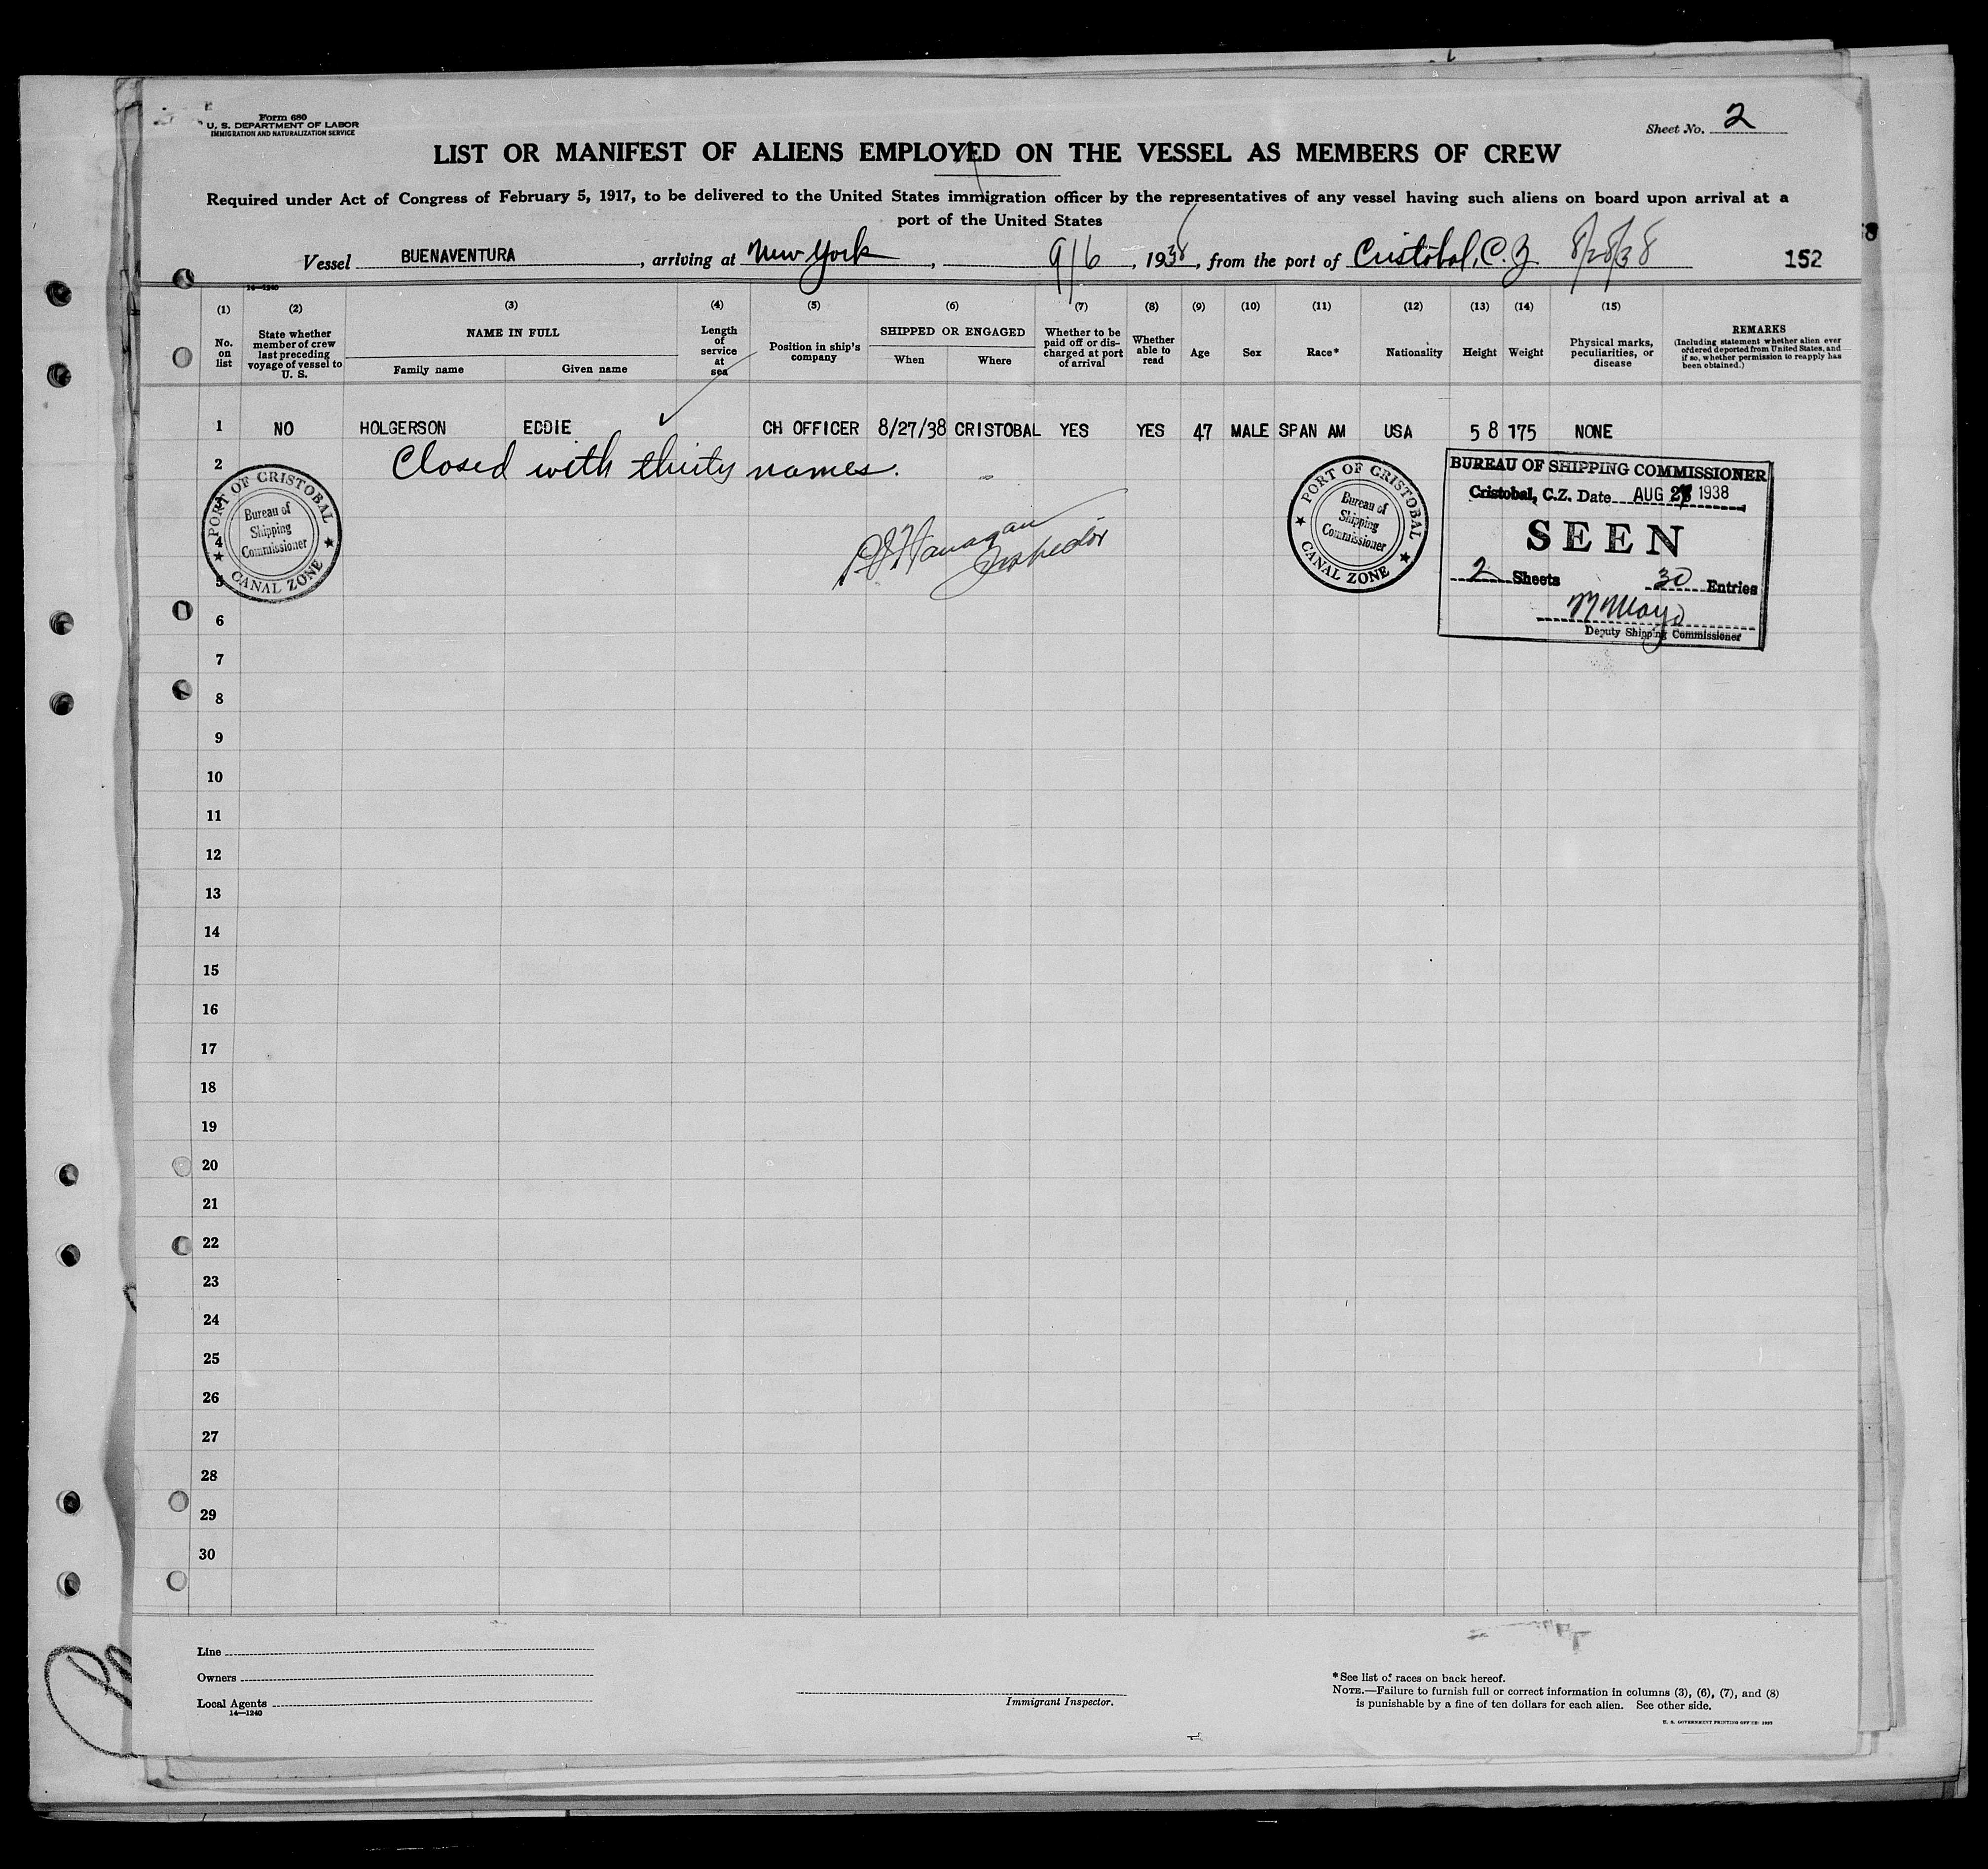 Form 680
U. S. DEPARTMENT OF LABOR
IMMIGRATION AND NATURALIZATION SERVICE
Sheet No. 2
LIST OR MANIFEST OF ALIENS EMPLOYED ON THE VESSEL AS MEMBERS OF CREW
Required under Act of Congress of February 5, 1917, to be delivered to the United States immigration officer by the representatives of any vessel having such aliens on board upon arrival at a
port of the United States
Vessel BUENAVENTURA, arriving at New York, 9/6, 1938, from the port of Cristobal, C. Z. 8/28/38 152
14—1240
(1) (2) (3) (4) (5) (6) (7) (8) (9) (10) (11) (12) (13) (14) (15)
No. on list
State whether member of crew last preceding voyage of vessel to U. S.
NAME IN FULL
Family name
Given name
Length of service at sea
Position in ship's company
SHIPPED OR ENGAGED
When
Where
Whether to be paid off or discharged at port of arrival
Whether able to read
Age
Sex
Race*
Nationality
Height
Weight
Physical marks, peculiarities, or disease
REMARKS
(Including statement whether alien ever ordered deported from United States, and if so, whether permission to reapply has been obtained.)
1 NO HOLGERSON EDDIE CH OFFICER 8/27/38 CRISTOBAL YES YES 47 MALE SPAN AM USA 5 8 175 NONE
2 Closed with thirty names.
PORT OF CRISTOBAL
Bureau of
Shipping
Commissioner
CANAL ZONE
Inspector
PORT OF CRISTOBAL
Bureau of
Shipping
Commissioner
CANAL ZONE
BUREAU OF SHIPPING COMMISSIONER
Cristobal, C.Z. Date AUG 27 1938
SEEN
2 Sheets 30 Entries
Deputy Shipping Commissioner
4
5
6
7
8
9
10
11
12
13
14
15
16
17
18
19
20
21
22
23
24
25
26
27
28
29
30
Line
Owners
Local Agents
14—1240
Immigrant Inspector.
*See list of races on back hereof.
NOTE.—Failure to furnish full or correct information in columns (3), (6), (7), and (8)
is punishable by a fine of ten dollars for each alien. See other side.